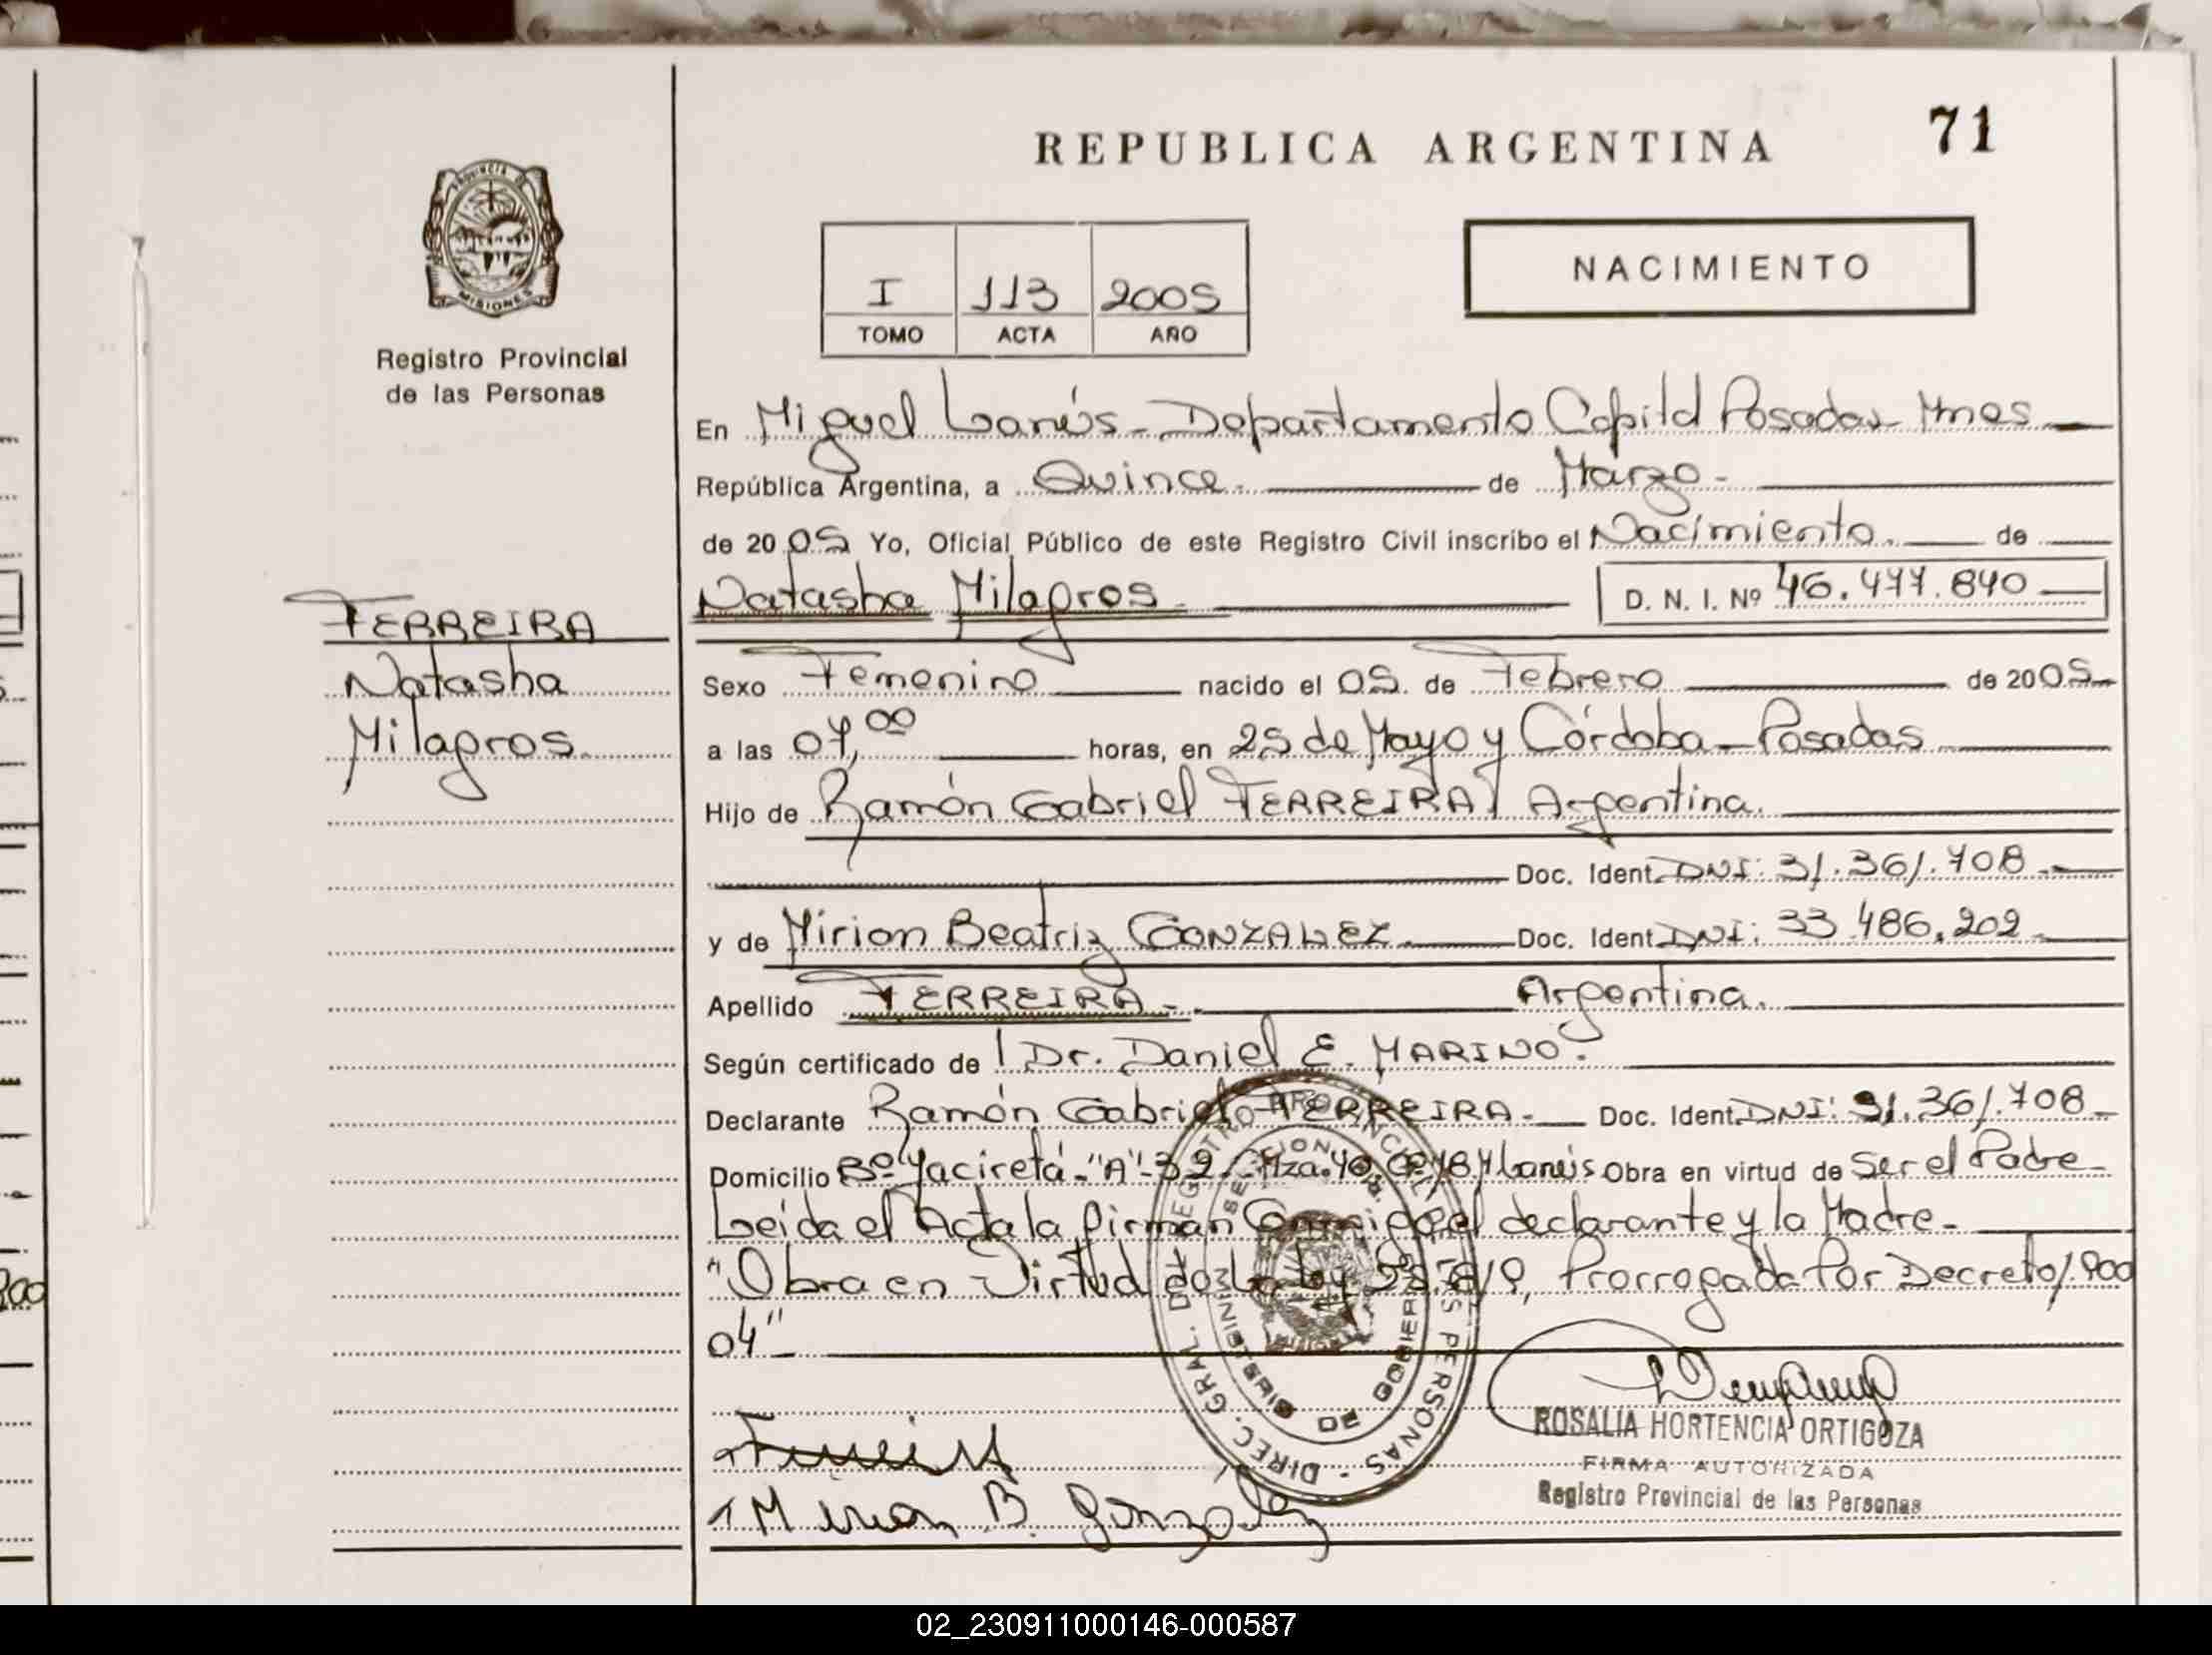 REPUBLICA ARGENTINA
71
PROVINCIA DE
MISIONES
Registro Provincial
de las Personas
I 113 2005
TOMO ACTA AÑO
NACIMIENTO
En Miguel Lanús - Departamento Capital Posadas Mnes
República Argentina, a Quince. de Marzo -
de 20 05 Yo, Oficial Público de este Registro Civil inscribo el Nacimiento. de
Natasha Milagros. D. N. I. Nº 46.477.840
FERREIRA
Natasha
Milagros.
Sexo Femenino nacido el 05. de Febrero de 2005
a las 07,00 horas, en 25 de Mayo y Córdoba - Posadas
Hijo de Ramón Gabriel FERREIRA / Argentina.
Doc. Ident. DNI: 31.361.708
y de Mirion Beatriz GONZALEZ. Doc. Ident DNI: 33.486.202
Apellido FERREIRA - Argentina.
Según certificado de / Dr. Daniel E. MARINO.
Declarante Ramón Gabriel FERREIRA. Doc. Ident. DNI: 31.361.708
Domicilio Bº Yaciretá - "A" - 32 - Mza. 40 Lanús Obra en virtud de Ser el Padre
Leida el Acta la firman Conmigo el declarante y la Madre -
"Obra en Virtud de la Ley , Prorrogada Por Decreto 1.900
04"
DIREC. GRAL. DEL REGISTRO PROVINCIAL DE LAS PERSONAS
MINISTERIO DE GOBIERNO
Mirian B. González
ROSALIA HORTENCIA ORTIGOZA
FIRMA AUTORIZADA
Registro Provincial de las Personas
02_230911000146-000587